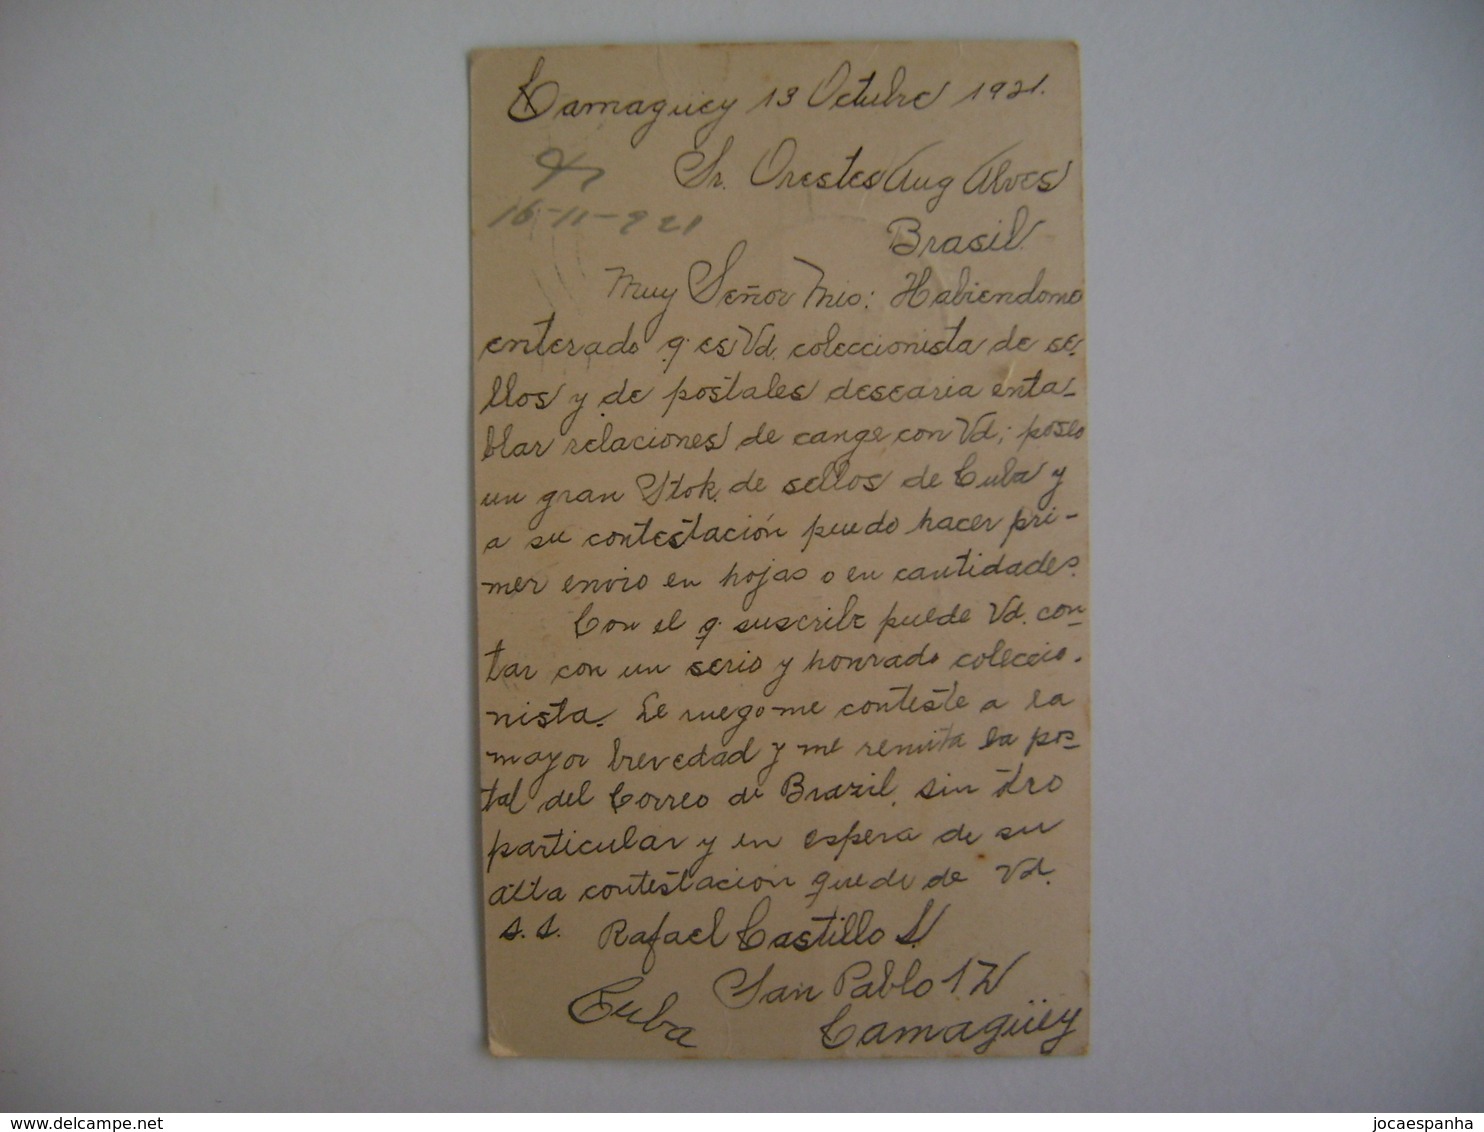 Camagüey 13 Octubre 1921.
Sr. Orestes Aug Alves
16-11-921
Brasil.
Muy Señor Mio: Habiendome
enterado q. es Vd. coleccionista de se-
llos y de postales desearia enta-
blar relaciones de cange con Vd; poseo
un gran Stok de sellos de Cuba y
a su contestación puedo hacer pri-
mer envio en hojas o en cantidades.
Con el q. suscribe puede Vd. con-
tar con un serio y honrado coleccio-
nista. Le ruego me conteste a la
mayor brevedad y me remita la pos-
tal del Correo de Brazil, sin otro
particular y en espera de su
atta contestacion quedo de Vd.
S. S. Rafael Castillo S.
San Pablo 17
Cuba Camagüey
delcampe.net
jocaespanha